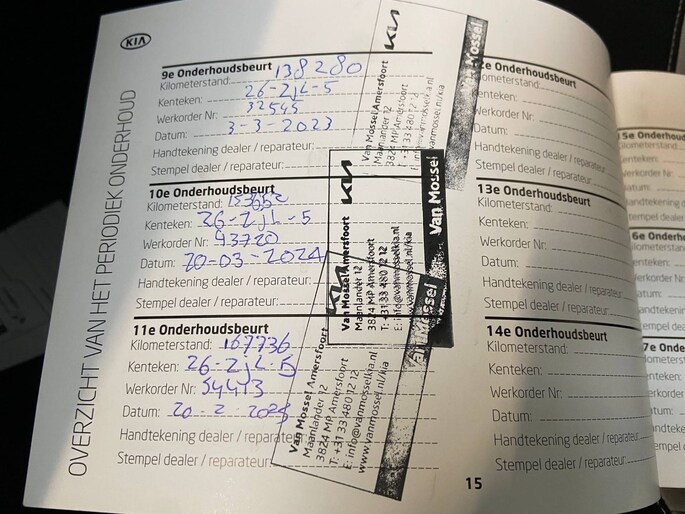 KIA
OVERZICHT VAN HET PERIODIEK ONDERHOUD
9e Onderhoudsbeurt
Kilometerstand: 138280
Kenteken: 26-ZJL-5
Werkorder Nr: 32545
Datum: 3-3-2023
Handtekening dealer / reparateur:
Stempel dealer / reparateur:
KIA
Van Mossel Amersfoort
Maanlander 12
3824 MP Amersfoort
T: +31 33 480 12 12
info@vanmosselkia.nl
www.vanmossel.nl/kia
Van Mossel
10e Onderhoudsbeurt
Kilometerstand: 153652
Kenteken: 26-ZJL-5
Werkorder Nr: 43720
Datum: 20-03-2024
Handtekening dealer / reparateur:
Stempel dealer / reparateur:
KIA
Van Mossel Amersfoort
Maanlander 12
3824 MP Amersfoort
T: +31 33 480 12 12
E: info@vanmosselkia.nl
www.vanmossel.nl/kia
Van Mossel
11e Onderhoudsbeurt
Kilometerstand: 167736
Kenteken: 26-ZJL-5
Werkorder Nr: 54413
Datum: 20-2-2025
Handtekening dealer / reparateur:
Stempel dealer / reparateur:
KIA
Van Mossel Amersfoort
Maanlander 12
3824 MP Amersfoort
T: +31 33 480 12 12
E: info@vanmosselkia.nl
www.vanmossel.nl/kia
an Mossel
2e Onderhoudsbeurt
ilometerstand:
Kenteken:
Werkorder Nr:
Datum:
Handtekening dealer / reparateur:
Stempel dealer / reparateur:
13e Onderhoudsbeurt
Kilometerstand:
Kenteken:
Werkorder Nr:
Datum:
Handtekening dealer / reparateur:
Stempel dealer / reparateur:
14e Onderhoudsbeurt
Kilometerstand:
Kenteken:
Werkorder Nr:
Datum:
Handtekening dealer / reparateur:
Stempel dealer / reparateur:
15
5e Onderhoud
Kilometerstand:
Kenteken:
Werkorder Nr:
Datum:
Handtekening
Stempel dealer
6e Onderho
Kenteken:
Werkorder Nr:
Datum:
7e Onder
Kenteken: